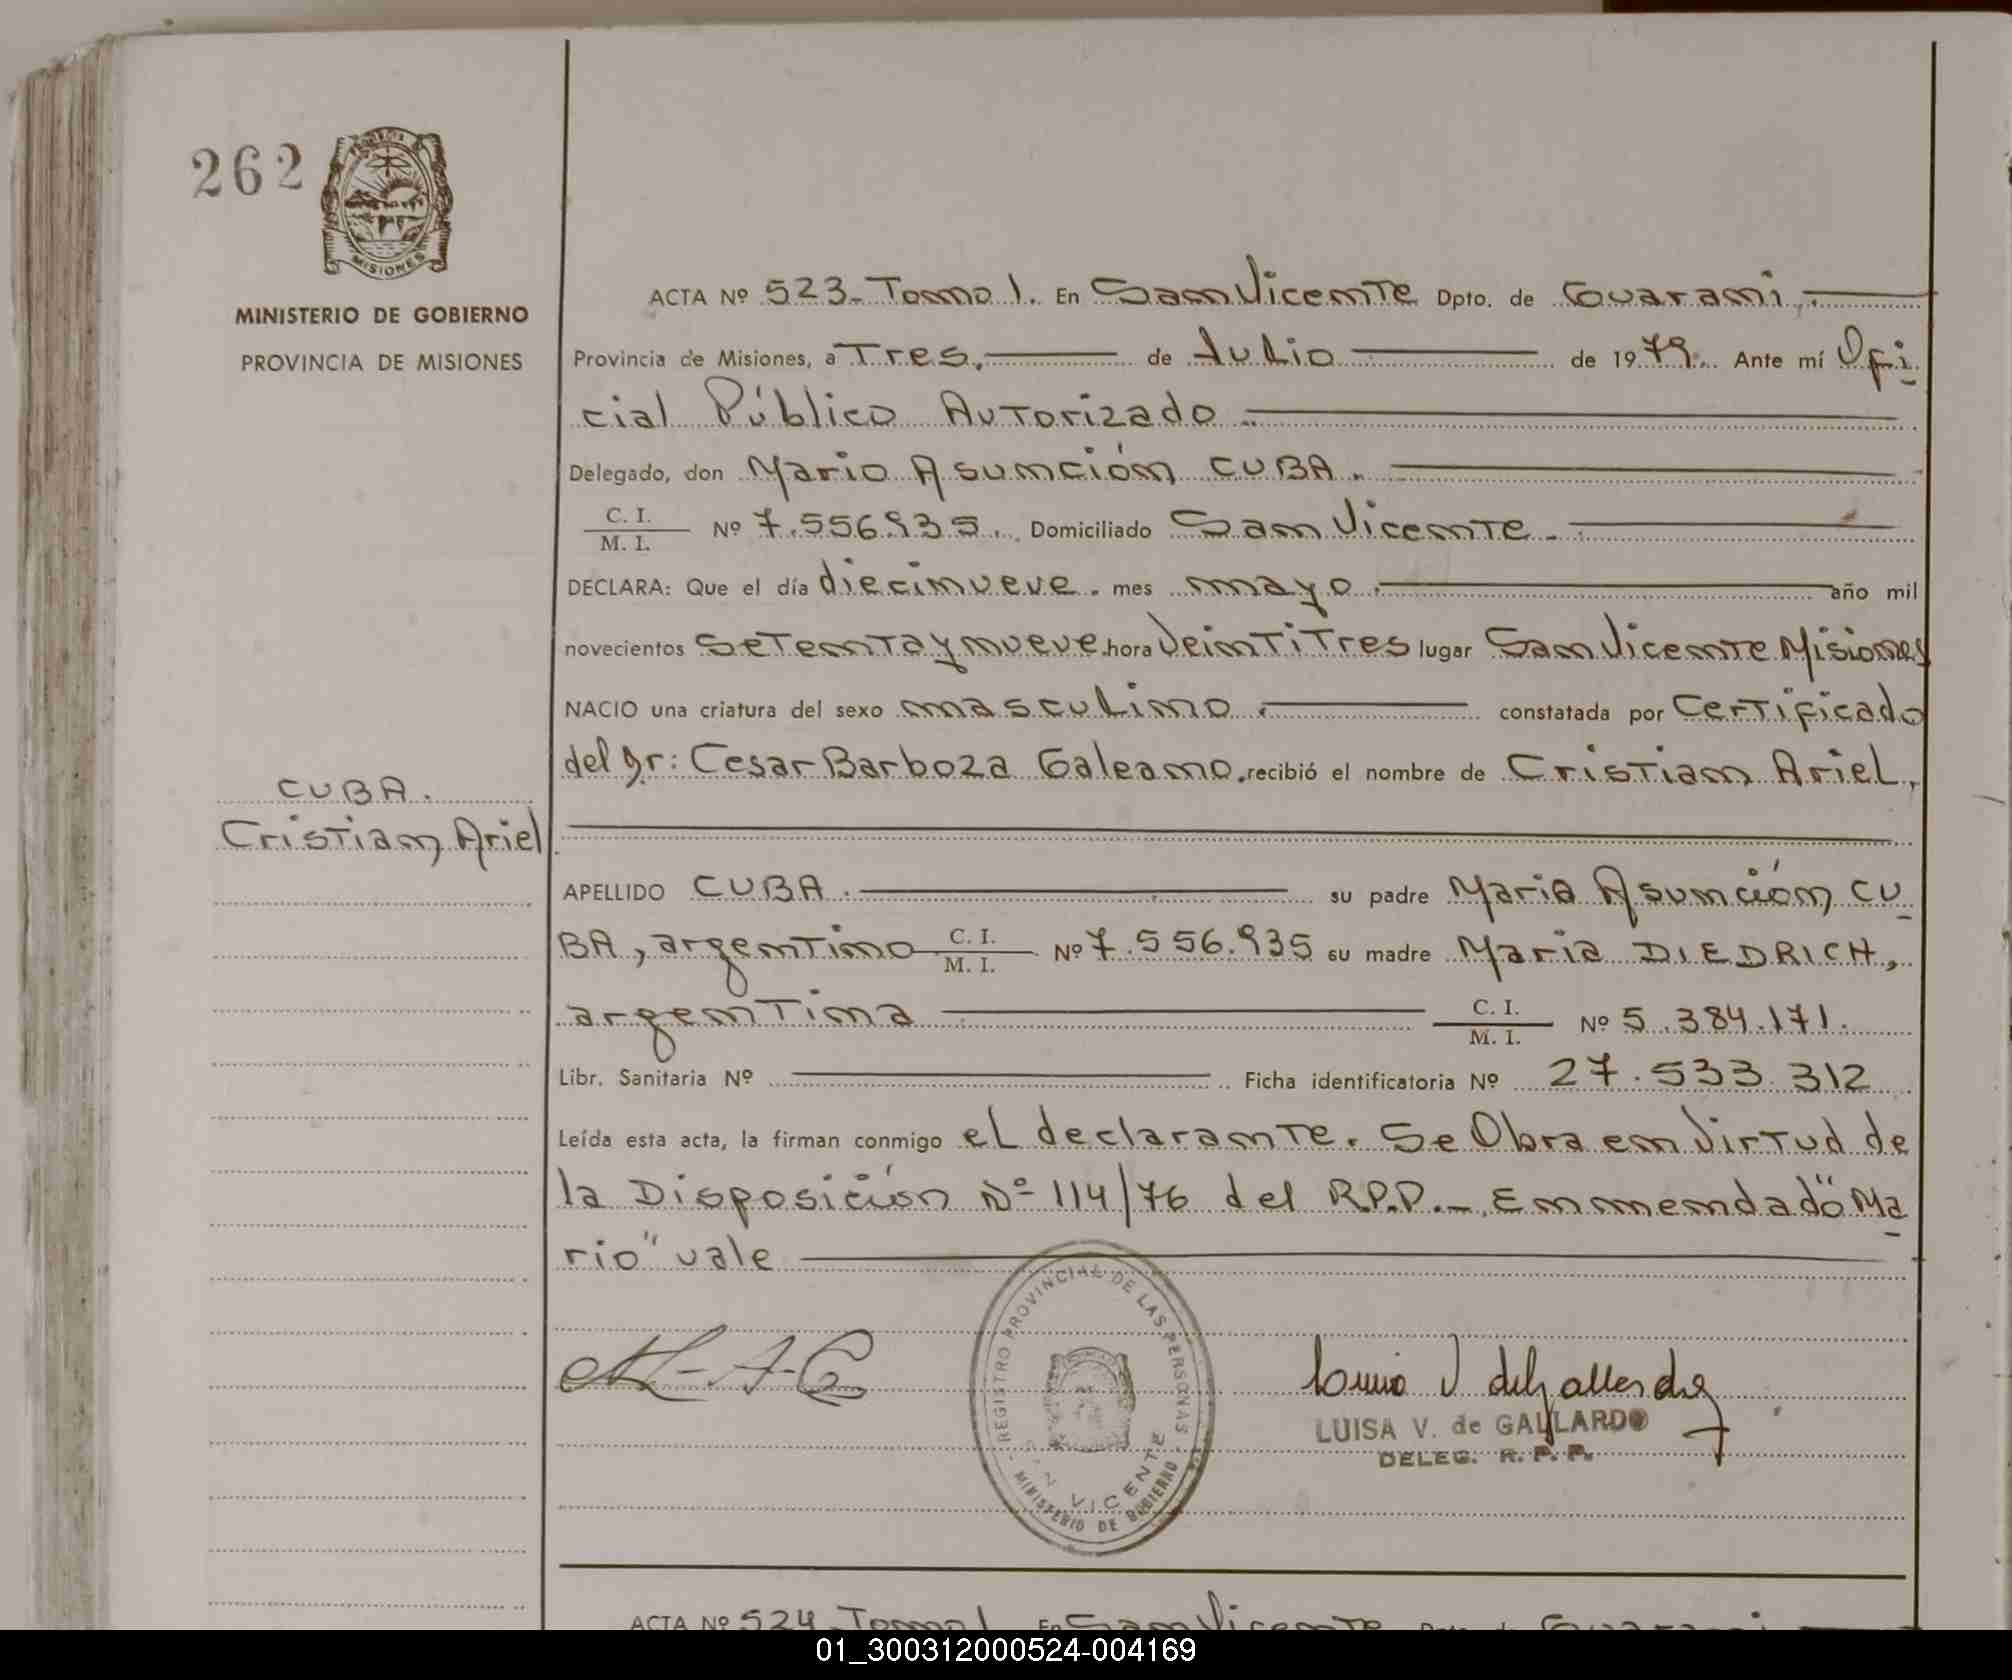 262
MISIONES
MINISTERIO DE GOBIERNO
PROVINCIA DE MISIONES
ACTA Nº 523-Tomo 1. En San Vicente Dpto. de Guarani.
Provincia de Misiones, a Tres, de Julio de 1979. Ante mí Ofi
cial Público Autorizado
Delegado, don Mario Asunción CUBA.
C. I.
M. I. Nº 7.556.935. Domiciliado San Vicente.
DECLARA: Que el día diecinueve. mes mayo. año mil
novecientos setenta y nueve. hora Veintitres lugar San Vicente Misiones
NACIO una criatura del sexo masculino. constatada por Certificado
del Dr: Cesar Barboza Galeano. recibió el nombre de Cristian Ariel,
CUBA.
Cristian Ariel
APELLIDO CUBA. su padre Mario Asunción CU
BA, argentino C. I.
M. I. Nº 7.556.935 su madre Maria DIEDRICH,
argentina C. I.
M. I. Nº 5.384.171.
Libr. Sanitaria Nº Ficha identificatoria Nº 27.533.312
Leída esta acta, la firman conmigo el declarante. Se Obra en Virtud de
la Disposición Nº 114/76 del R.P.P.-. Enmendado "Ma
rio" vale
REGISTRO PROVINCIAL DE LAS PERSONAS
SAN VICENTE
MINISTERIO DE GOBIERNO
LUISA V. de GALLARDO
DELEG. R. P. P.
ACTA Nº 524 Tomo 1 En San Vicente Dpto. de Guarani
01_300312000524-004169